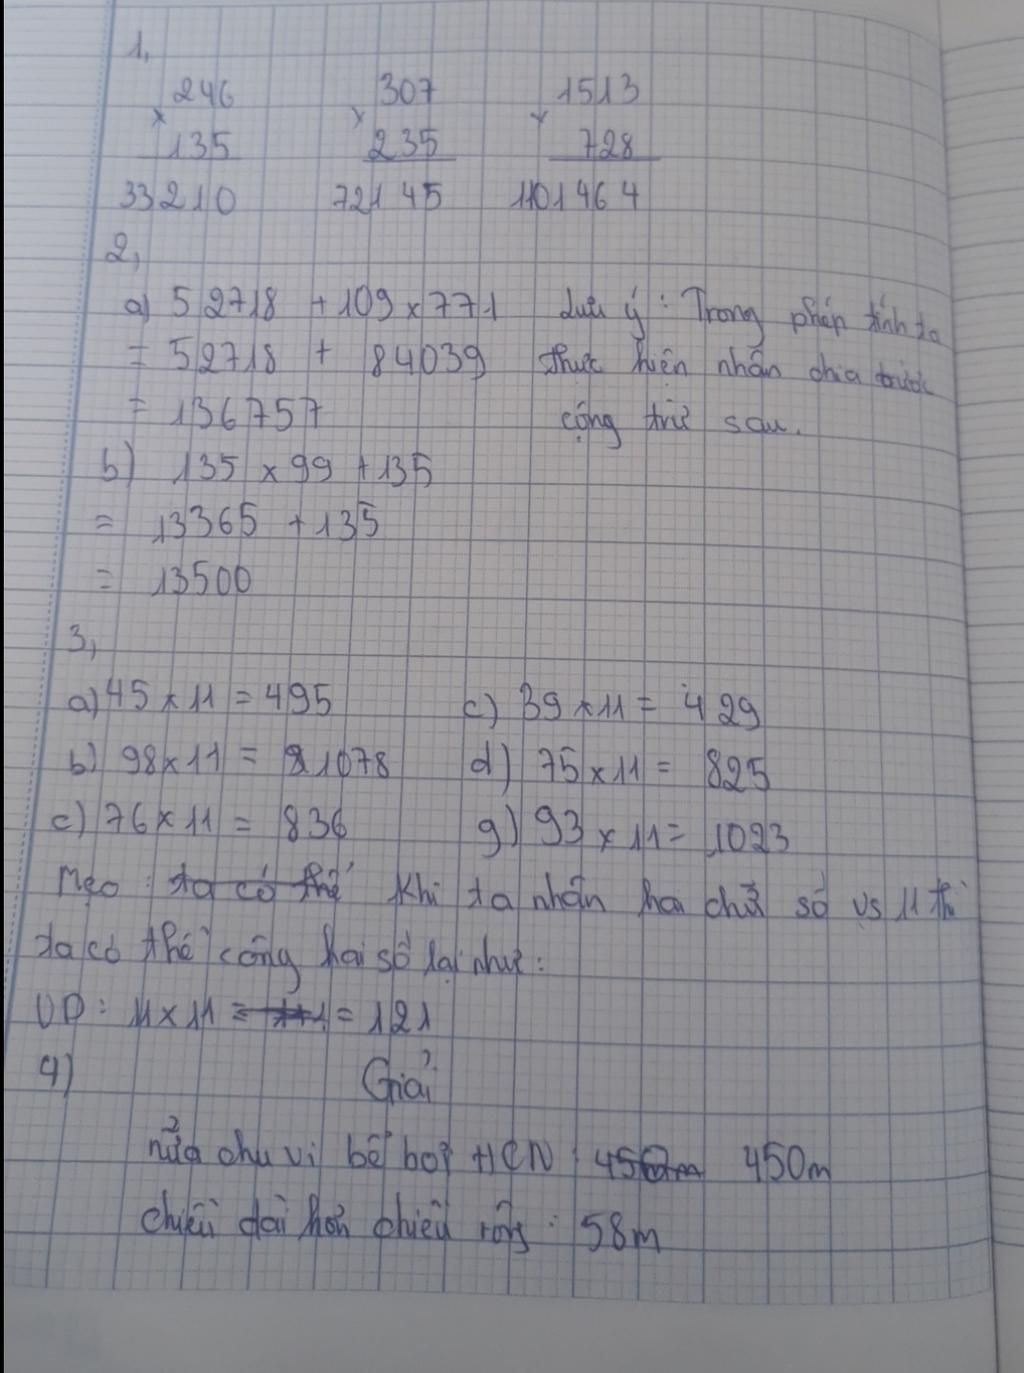 1,
246 307 1513
× × ×
135 235 728
33210 72145 1101464
2,
a) 52718 + 109 × 771 Lưu ý : Trong phép tính ta
= 52718 + 84039 thực hiện nhân chia trước
= 136757 cộng trừ sau.
b) 135 × 99 + 135
= 13365 + 135
= 13500
3,
a) 45 × 11 = 495 c) 39 × 11 = 429
b) 98 × 11 = 1078 d) 75 × 11 = 825
c) 76 × 11 = 836 g) 93 × 11 = 1023
Mẹo : ta có thể Khi ta nhân hai chữ số vs 11 thì
ta có thể cộng hai số lại như :
VD : 11 × 11 = = 121
4) Giải
nửa chu vi bể bơi HCN : 450m 450m
chiều dài hơn chiều rộng : 58m